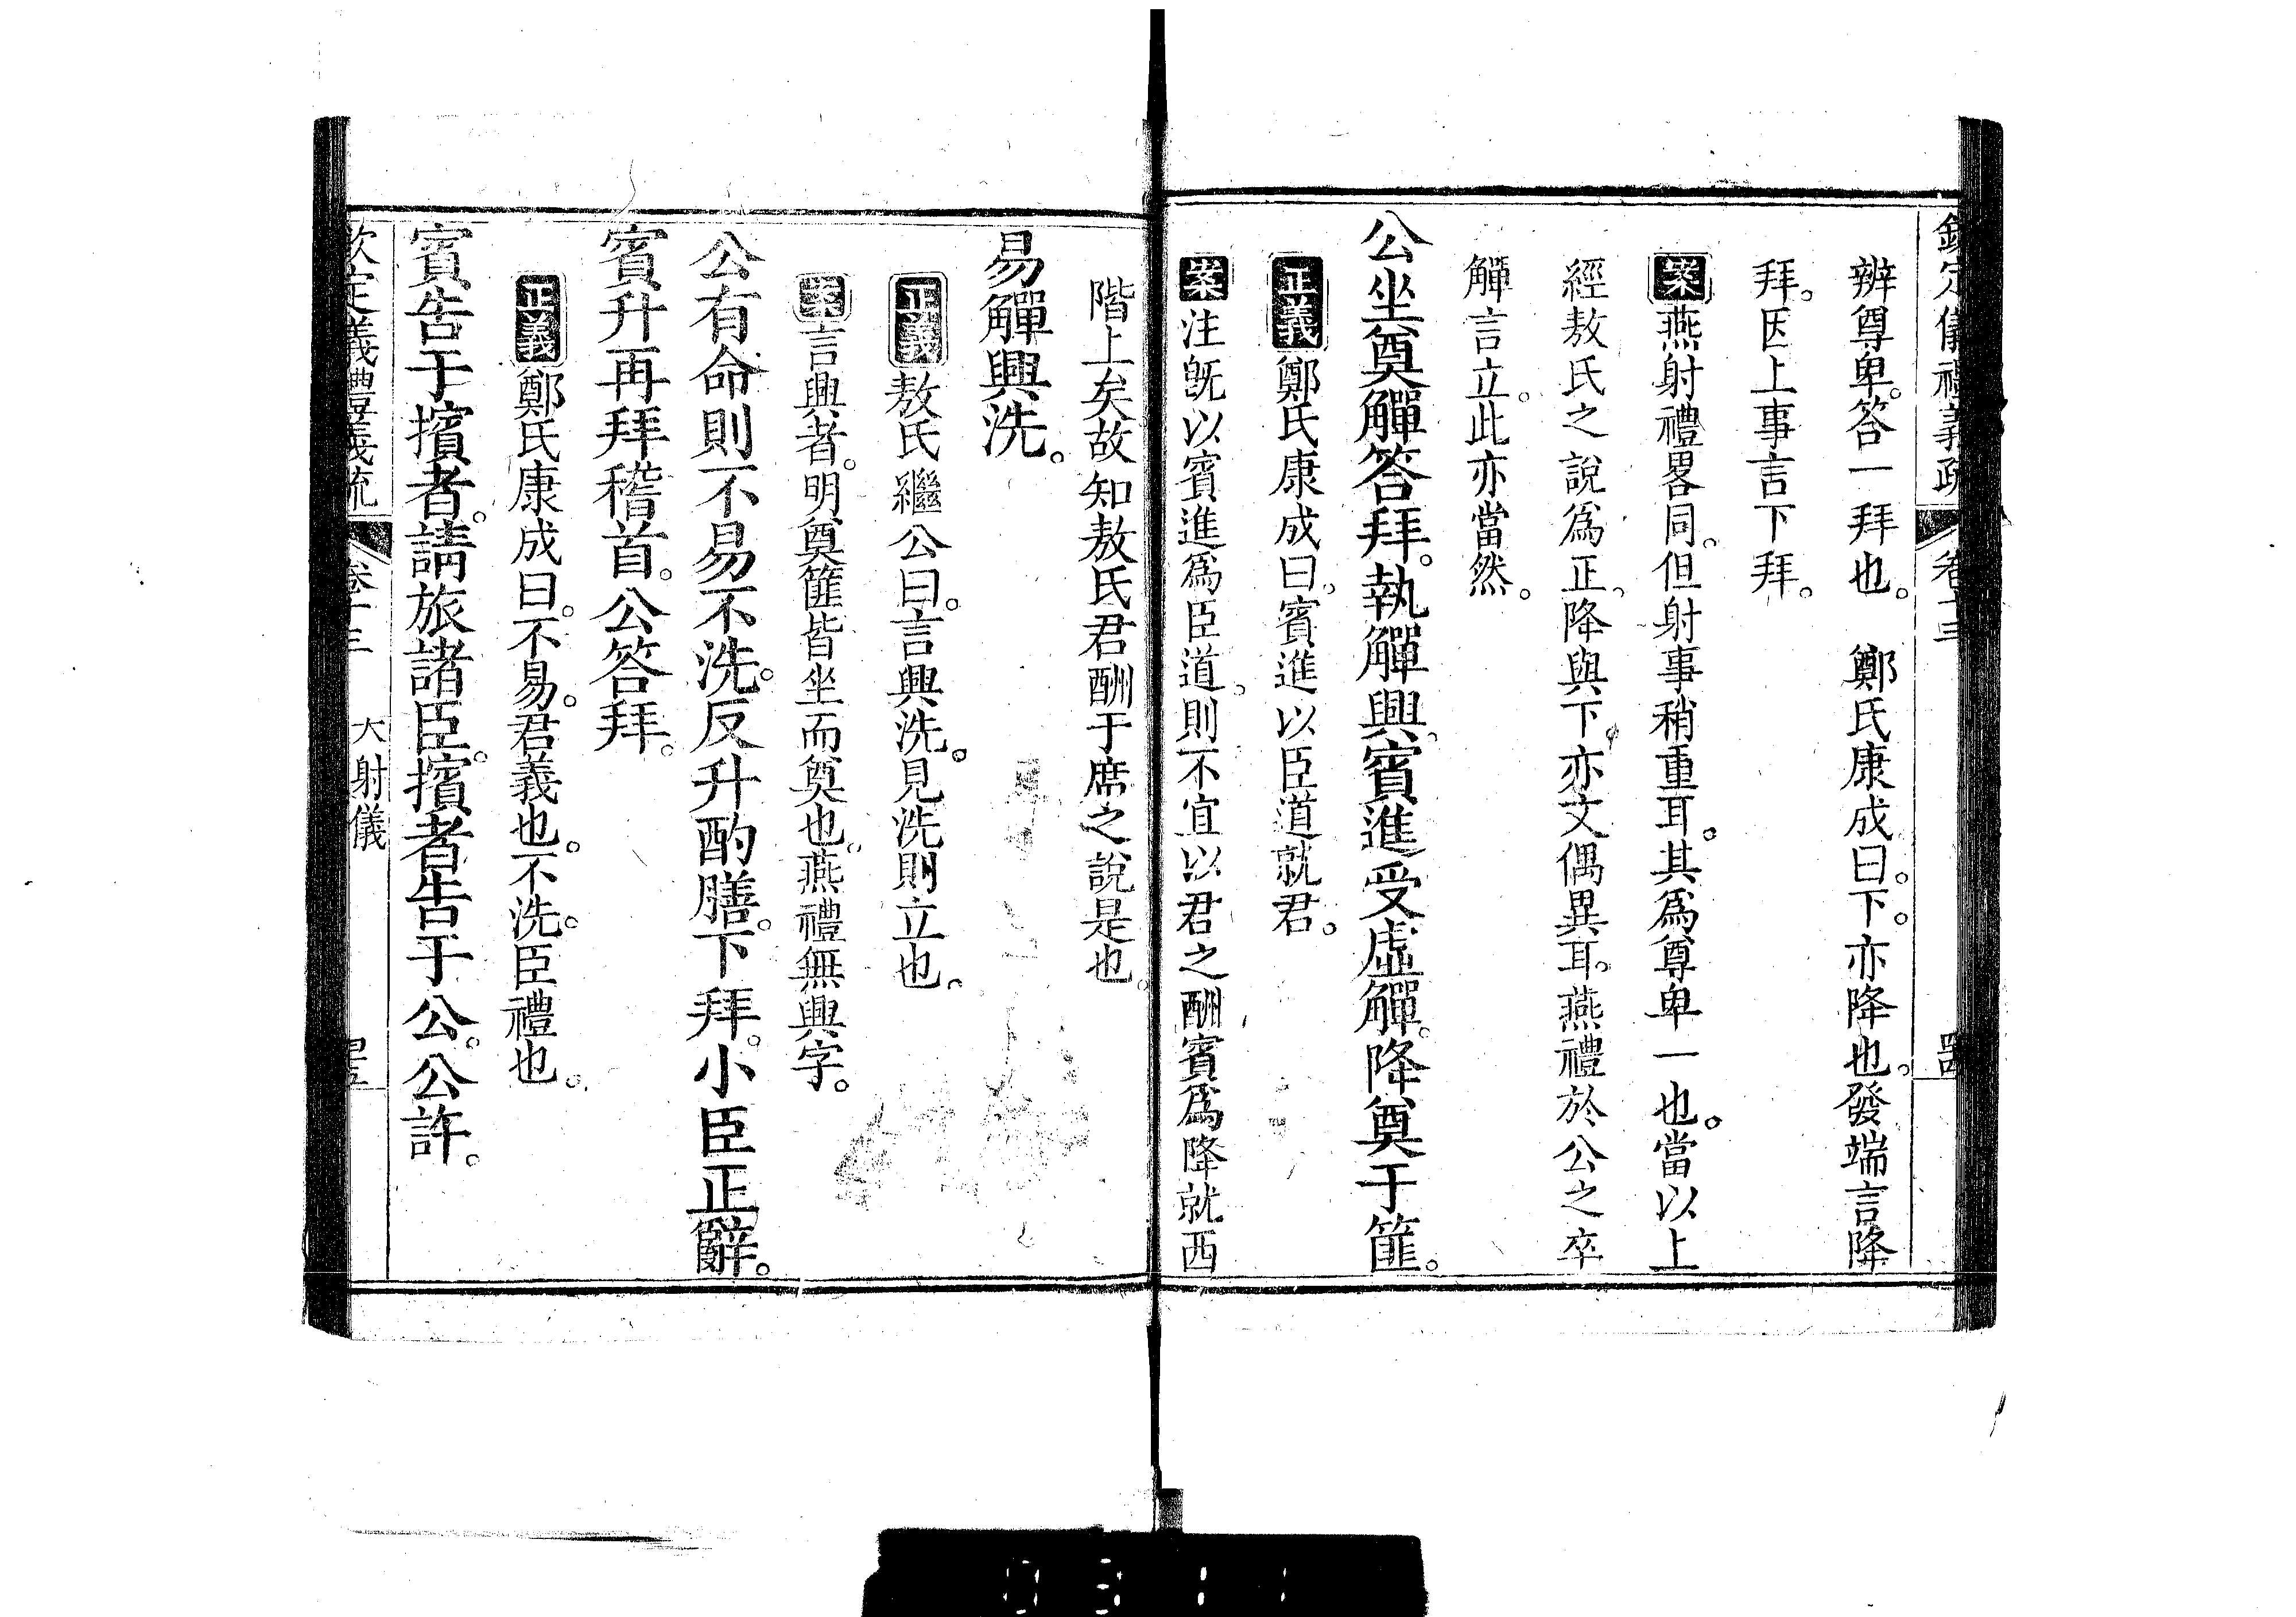 欽定儀禮義疏 卷十三 四
辨尊卑。答一拜也。 鄭氏康成曰。下。亦降也。發端言降
拜。因上事言下拜。
案燕射禮畧同。但射事稍重耳。其爲尊卑一也。當以上
經敖氏之說爲正。降與下。亦文偶異耳。燕禮於公之卒
觶言立。此亦當然。
公坐奠觶答拜。執觶興。賓進受虛觶。降奠于篚。
正義鄭氏康成曰。賓進以臣道就君。
案注旣以賓進爲臣道。則不宜以君之酬賓爲降就西
階上矣故知敖氏君酬于席之說是也。
易觶興洗。
正義敖氏繼公曰。言興洗。見洗則立也。
案言興者。明奠篚皆坐而奠也。燕禮無興字。
公有命則不易不洗。反升酌膳。下拜。小臣正辭。
賓升再拜稽首。公答拜。
正義鄭氏康成曰。不易。君義也。不洗。臣禮也。
賓告于擯者。請旅諸臣。擯者告于公。公許。
欽定儀禮義疏 卷十三 大射儀
0311